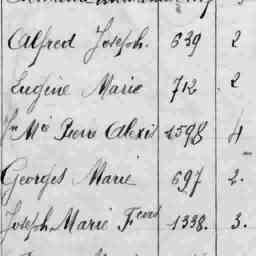 Alfred Joseph. 639 2
Eugène Marie 712 2
Jn Mie Pierre Alexis 1598 4
Georges Marie 697 2.
Joseph Marie Fcois 1338. 3.